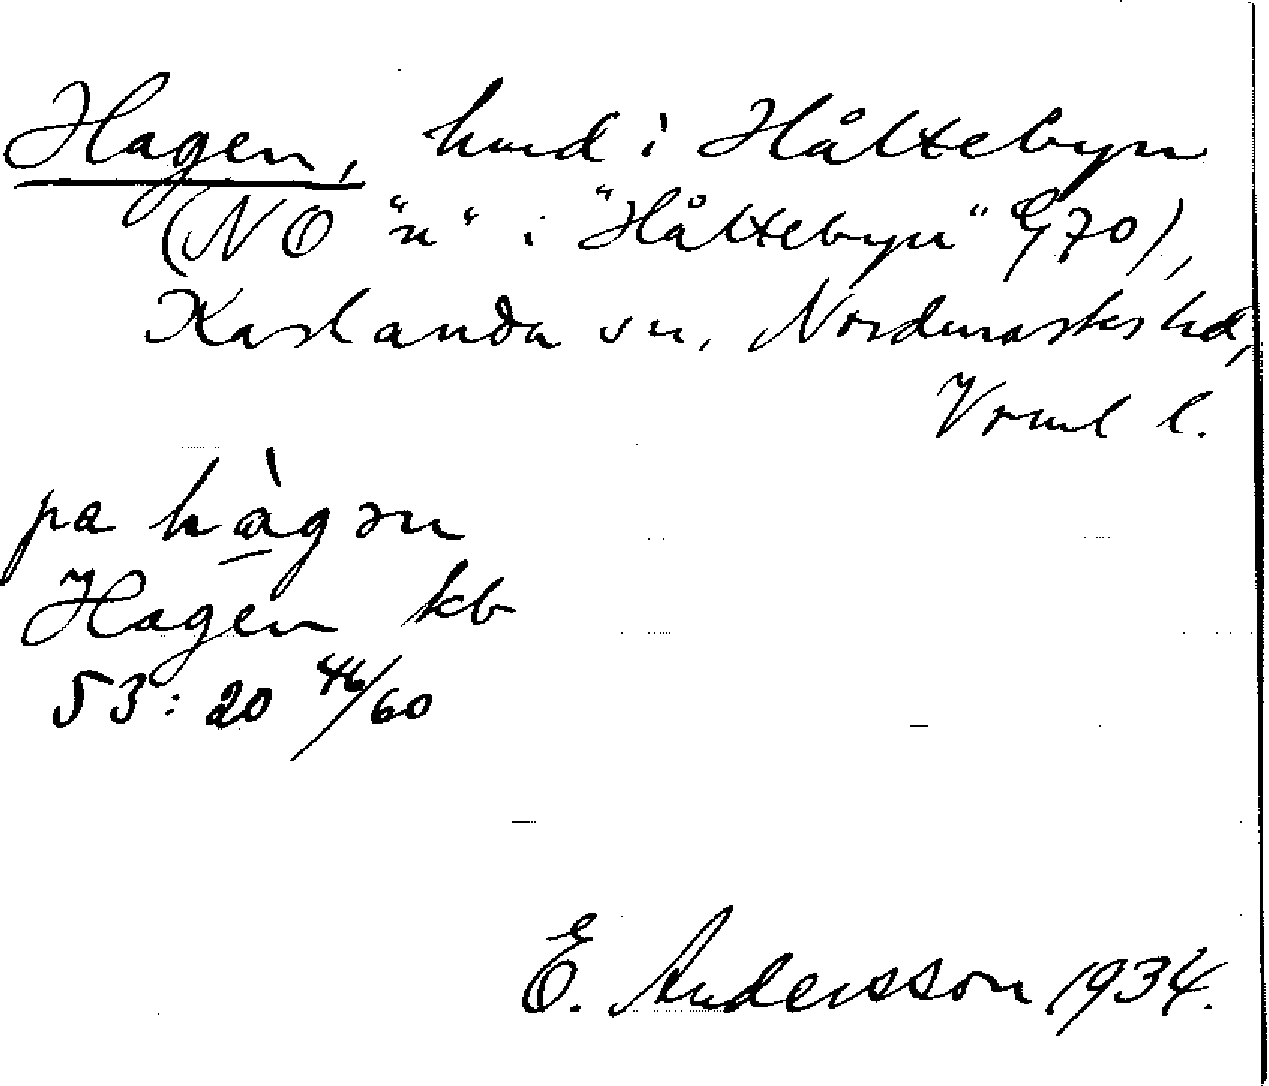 Hagen, hmd i Håltebyn
(NO "n" i "Håltebyn" G70),
Karlanda sn, Nordmarks hd,
Vrml l.
pa hàgən
Hagen kb
53:20 46/60
E. Andersson 1934.